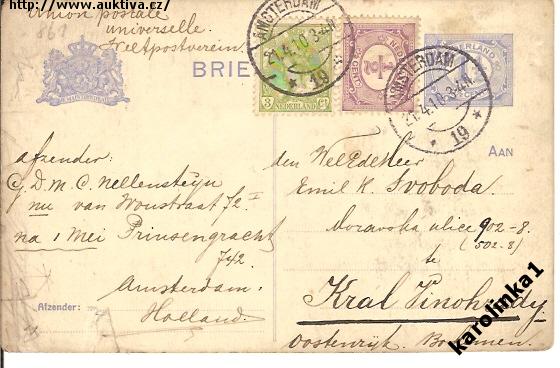 http://www.auktiva.cz/
Union postale
861
universelle.
Weltpostverein.
BRIE
AMSTERDAM
21.4.10.3-4N
19
3
NEDERLAND
3
AMSTERDAM
21.4.10.3-4N
19
AAN
afzender:
G. D. M. C. Nellensteyn
nu van Woustraat 72 I
na 1 Mei Prinsengracht
742.
Amsterdam.
Holland.
Afzender:
den WelEdelHeer
Emil K. Svoboda.
Moravska ulice 902-8.
(502-8)
te
Kral Vinohrady.
Oostenrijk. Bohemen.
karolinka1